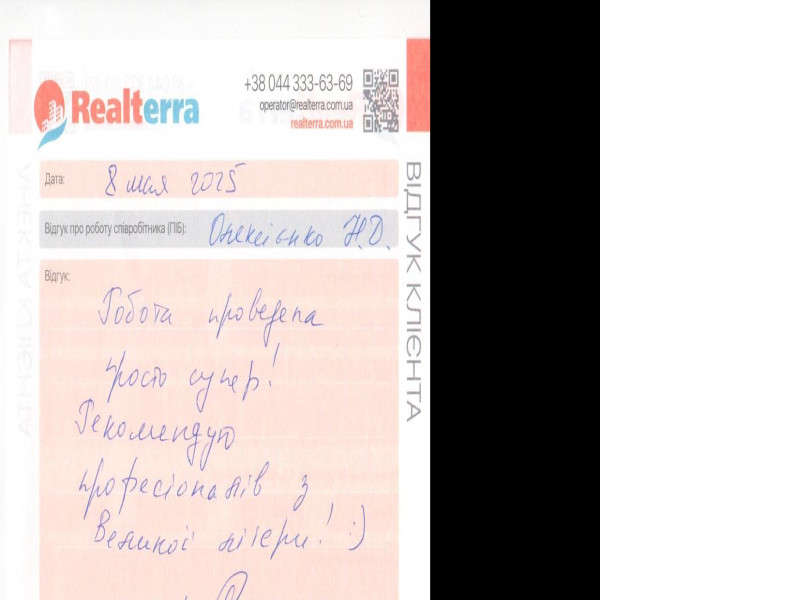 Realterra
+38 044 333-63-69
operator@realterra.com.ua
realterra.com.ua
Дата: 8 мая 2025
Відгук про роботу співробітника (ПІБ): Олексієнко Н.О.
Відгук:
Робота проведена
просто супер!
Рекомендую
професіоналів з
Великої літери! :)
ВІДГУК КЛІЄНТА